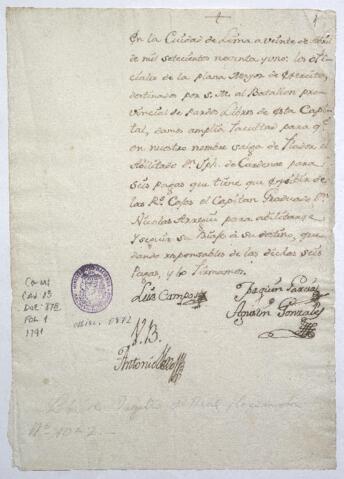 En la Ciudad de Lima a veinte de Abril
de mil setecientos noventa y uno: los ofi
ciales de la plana Mayor de Exercito,
destinada por S. M. al Batallon pro
vincial de Pardos Libres de esta Capi
tal, damos amplia facultad para qe
en nuestro nombre salga de fiador el
Abilitado Dn. Jph. de Cardenas para
seis pagas que tiene que
las Rs. Cajas el Capitan Graduado Dn.
Nicolas para abilitarse
y seguir su Viaje à su destino, que
dando responsables de las dichas seis
Pagas, y lo firmamos.
Luis Campos
Joaquin
Agustin Gonzales
V. B.
Antonio
CAJ. 13
DOC. 878
FOL. 1
1791
No. 1042